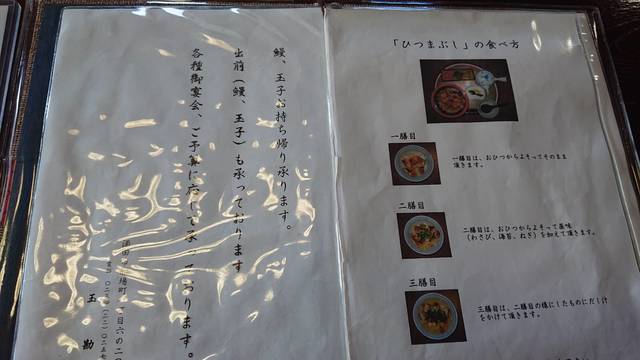 鰻、玉子お持ち帰り承ります。
出前（鰻、玉子）も承っております
各種御宴会、ご予算に応じて承
ております。
玉勘
「ひつまぶし」の食べ方
一膳目
一膳目は、おひつからよそってそのまま
頂きます。
二膳目
二膳目は、おひつからよそって薬味
（わさび、海苔、ねぎ）を加えて頂きます。
三膳目
三膳目は、二膳目の様にしたものにだし汁
をかけて頂きます。